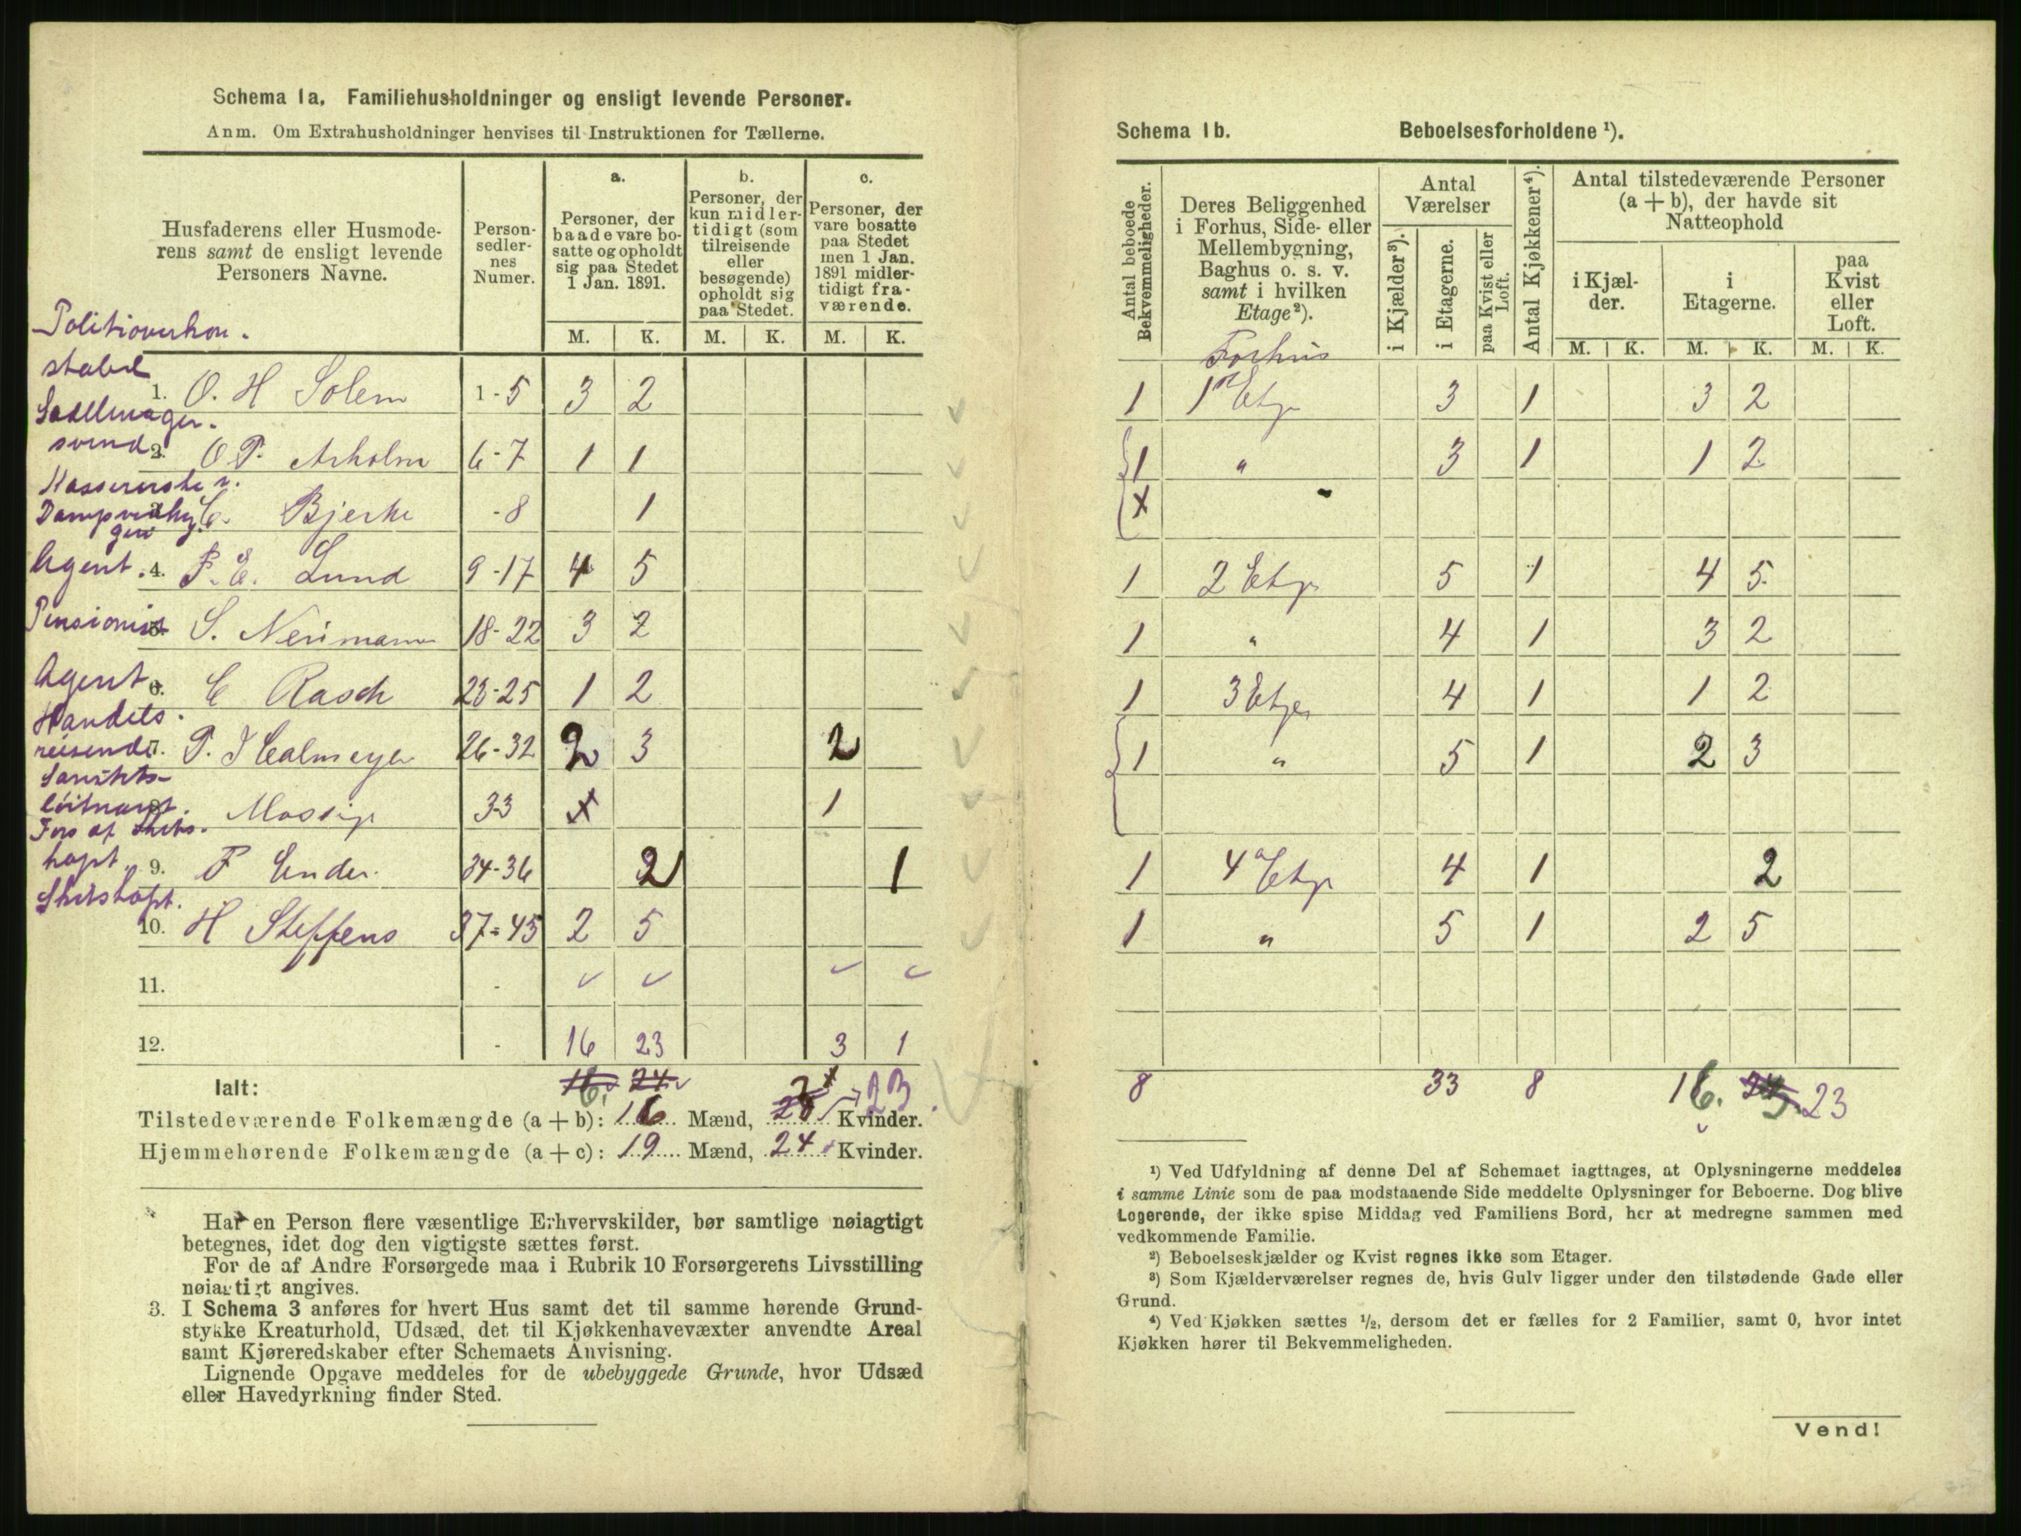 Schema 1a. Familiehusholdninger og ensligt levende Personer.
Anm. Om Extrahusholdninger henvises til Instruktionen for Tællerne.
Husfaderens eller Husmoderens samt de ensligt levende Personers Navne.
Person-sedler-nes Numer.
a.
Personer, der baade vare bosatte og opholdt sig paa Stedet 1 Jan. 1891.
b.
Personer, der kun midlertidigt (som tilreisende eller besøgende) opholdt sig paa Stedet.
c.
Personer, der vare bosatte paa Stedet men 1 Jan. 1891 midlertidigt fraværende.
M. K. M. K. M. K.
Politioverkon.
stabel
1. O. H Solem 1-5 3 2
Sadelmager.
svend
2. O P. Arholm 6-7 1 1
Kassererske v.
3. C. Bjerke -8 1
Agent. 4. P. E. Lund 9-17 4 5
Pensionist 5. S. Neumann 18-22 3 2
Agent 6. C Rasch 23-25 1 2
Handels.
reisende 7. P. J Calmeyer 26-32 2 3 2
Sanitets-
löitnant.
8. Mossige 33 x 1
hapt. 9. F Ender. 34-36 2 1
Skibskapt.
10. H Steffens 37-45 2 5
11.
12. 16 23 3 1
Ialt: 16 24
Tilstedeværende Folkemængde (a + b): 16 Mænd, 23 Kvinder.
Hjemmehørende Folkemængde (a + c): 19 Mænd, 24 Kvinder.
Har en Person flere væsentlige Erhvervskilder, bør samtlige nøiagtigt
betegnes, idet dog den vigtigste sættes først.
For de af Andre Forsørgede maa i Rubrik 10 Forsørgerens Livsstilling
nøiagtigt angives.
3. I Schema 3 anføres for hvert Hus samt det til samme hørende Grund-
stykke Kreaturhold, Udsæd, det til Kjøkkenhavevæxter anvendte Areal
samt Kjøreredskaber efter Schemaets Anvisning.
Lignende Opgave meddeles for de ubebyggede Grunde, hvor Udsæd
eller Havedyrkning finder Sted.
Schema 1b. Beboelsesforholdene ¹).
Antal beboede Bekvemmeligheder.
Deres Beliggenhed i Forhus, Side- eller Mellembygning, Baghus o. s. v. samt i hvilken Etage²).
Antal Værelser
i Kjælder³).
i Etagerne.
paa Kvist eller Loft.
Antal Kjøkkener⁴).
Antal tilstedeværende Personer (a + b), der havde sit Natteophold
i Kjæl-der.
i Etagerne.
paa Kvist eller Loft.
M. K. M. K. M. K.
Forhus
1 1ª Etg 3 1 3 2
1 " 3 1 1 2
x "
1 2 Etg 5 1 4 5
1 " 4 1 3 2
1 3 Etg 4 1 1 2
1 " 5 1 2 3
1 4ª Etg 4 1 2
1 " 5 1 2 5
8 33 8 16. 24 23
¹) Ved Udfyldning af denne Del af Schemaet iagttages, at Oplysningerne meddeles
i samme Linie som de paa modstaaende Side meddelte Oplysninger for Beboerne. Dog blive
Logerende, der ikke spise Middag ved Familiens Bord, her at medregne sammen med
vedkommende Familie.
²) Beboelseskjælder og Kvist regnes ikke som Etager.
³) Som Kjælderværelser regnes de, hvis Gulv ligger under den tilstødende Gade eller
Grund.
⁴) Ved Kjøkken sættes ½, dersom det er fælles for 2 Familier, samt 0, hvor intet
Kjøkken hører til Bekvemmeligheden.
Vend!